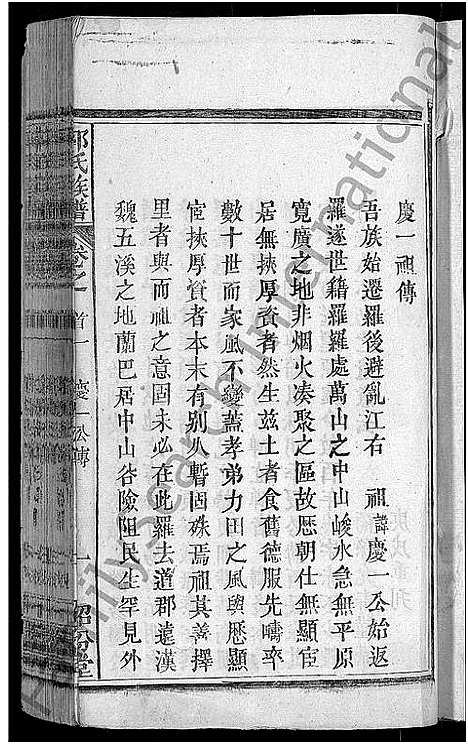 慶一祖傳
吾族始遷羅後避亂江右　祖諱慶一公始返
羅遂世籍羅羅處萬山之中山峻水急無平原
寬廣之地非烟火凑聚之區故厯朝仕無顯宦
居無挾厚資者然生兹土者食舊德服先疇卒
數十世而家風不變蓋孝弟力田之風與厯顯
宦挾厚資者本末有别久暫固殊焉祖其善擇
里者與而祖之意固未必在此羅去道郡遠漢
魏五溪之地蘭巴居中山谷險阻民生罕見外
氏族譜
卷之一
首一
慶一公傳
一
堂
FamilySearch International